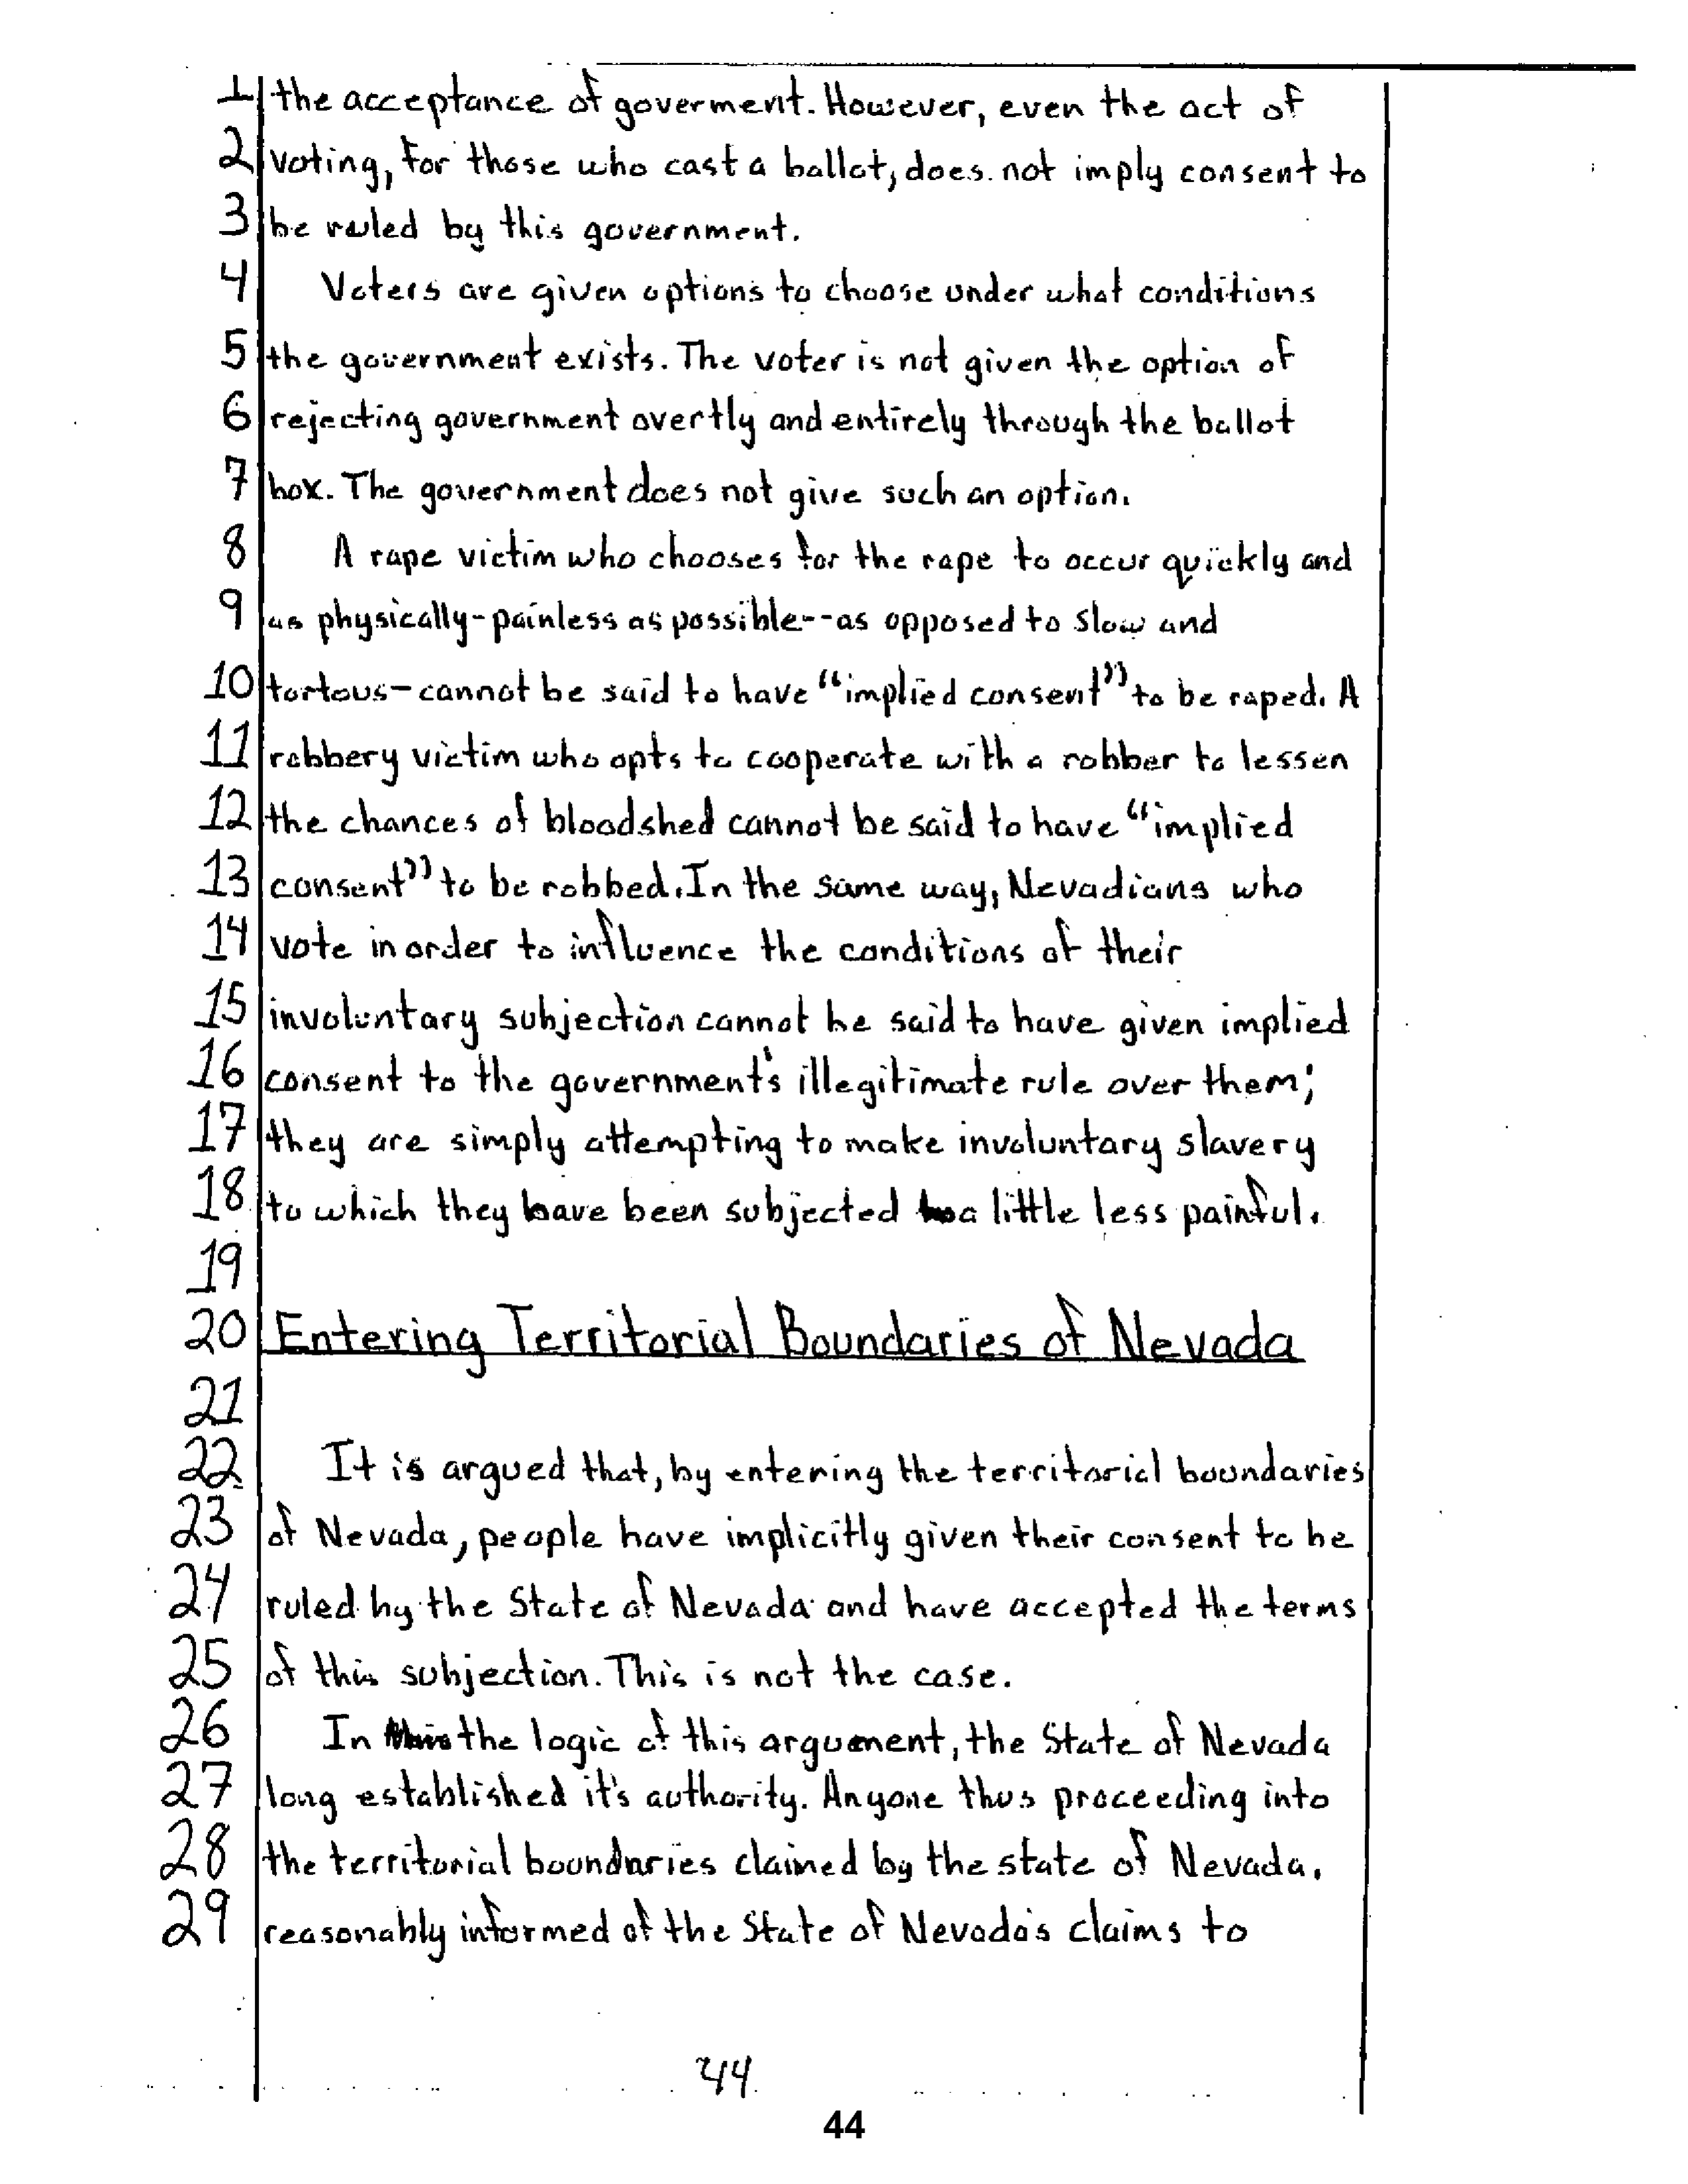 1 the acceptance of goverment. However, even the act of
2 voting, for those who cast a ballot, does not imply consent to
3 be ruled by this government.
4 Voters are given options to choose under what conditions
5 the government exists. The voter is not given the option of
6 rejecting government overtly and entirely through the ballot
7 box. The government does not give such an option.
8 A rape victim who chooses for the rape to occur quickly and
9 as physically-painless as possible--as opposed to slow and
10 tortous-cannot be said to have "implied consent" to be raped. A
11 robbery victim who opts to cooperate with a robber to lessen
12 the chances of bloodshed cannot be said to have "implied
13 consent" to be robbed. In the same way, Nevadians who
14 vote in order to influence the conditions of their
15 involuntary subjection cannot be said to have given implied
16 consent to the government's illegitimate rule over them;
17 they are simply attempting to make involuntary slavery
18 to which they have been subjected a little less painful.
19
20 Entering Territorial Boundaries of Nevada
21
22 It is argued that, by entering the territorial boundaries
23 of Nevada, people have implicitly given their consent to be
24 ruled by the State of Nevada and have accepted the terms
25 of this subjection. This is not the case.
26 In the logic of this arguement, the State of Nevada
27 long established it's authority. Anyone thus proceeding into
28 the territorial boundaries claimed by the state of Nevada,
29 reasonably informed of the State of Nevada's claims to
44
44